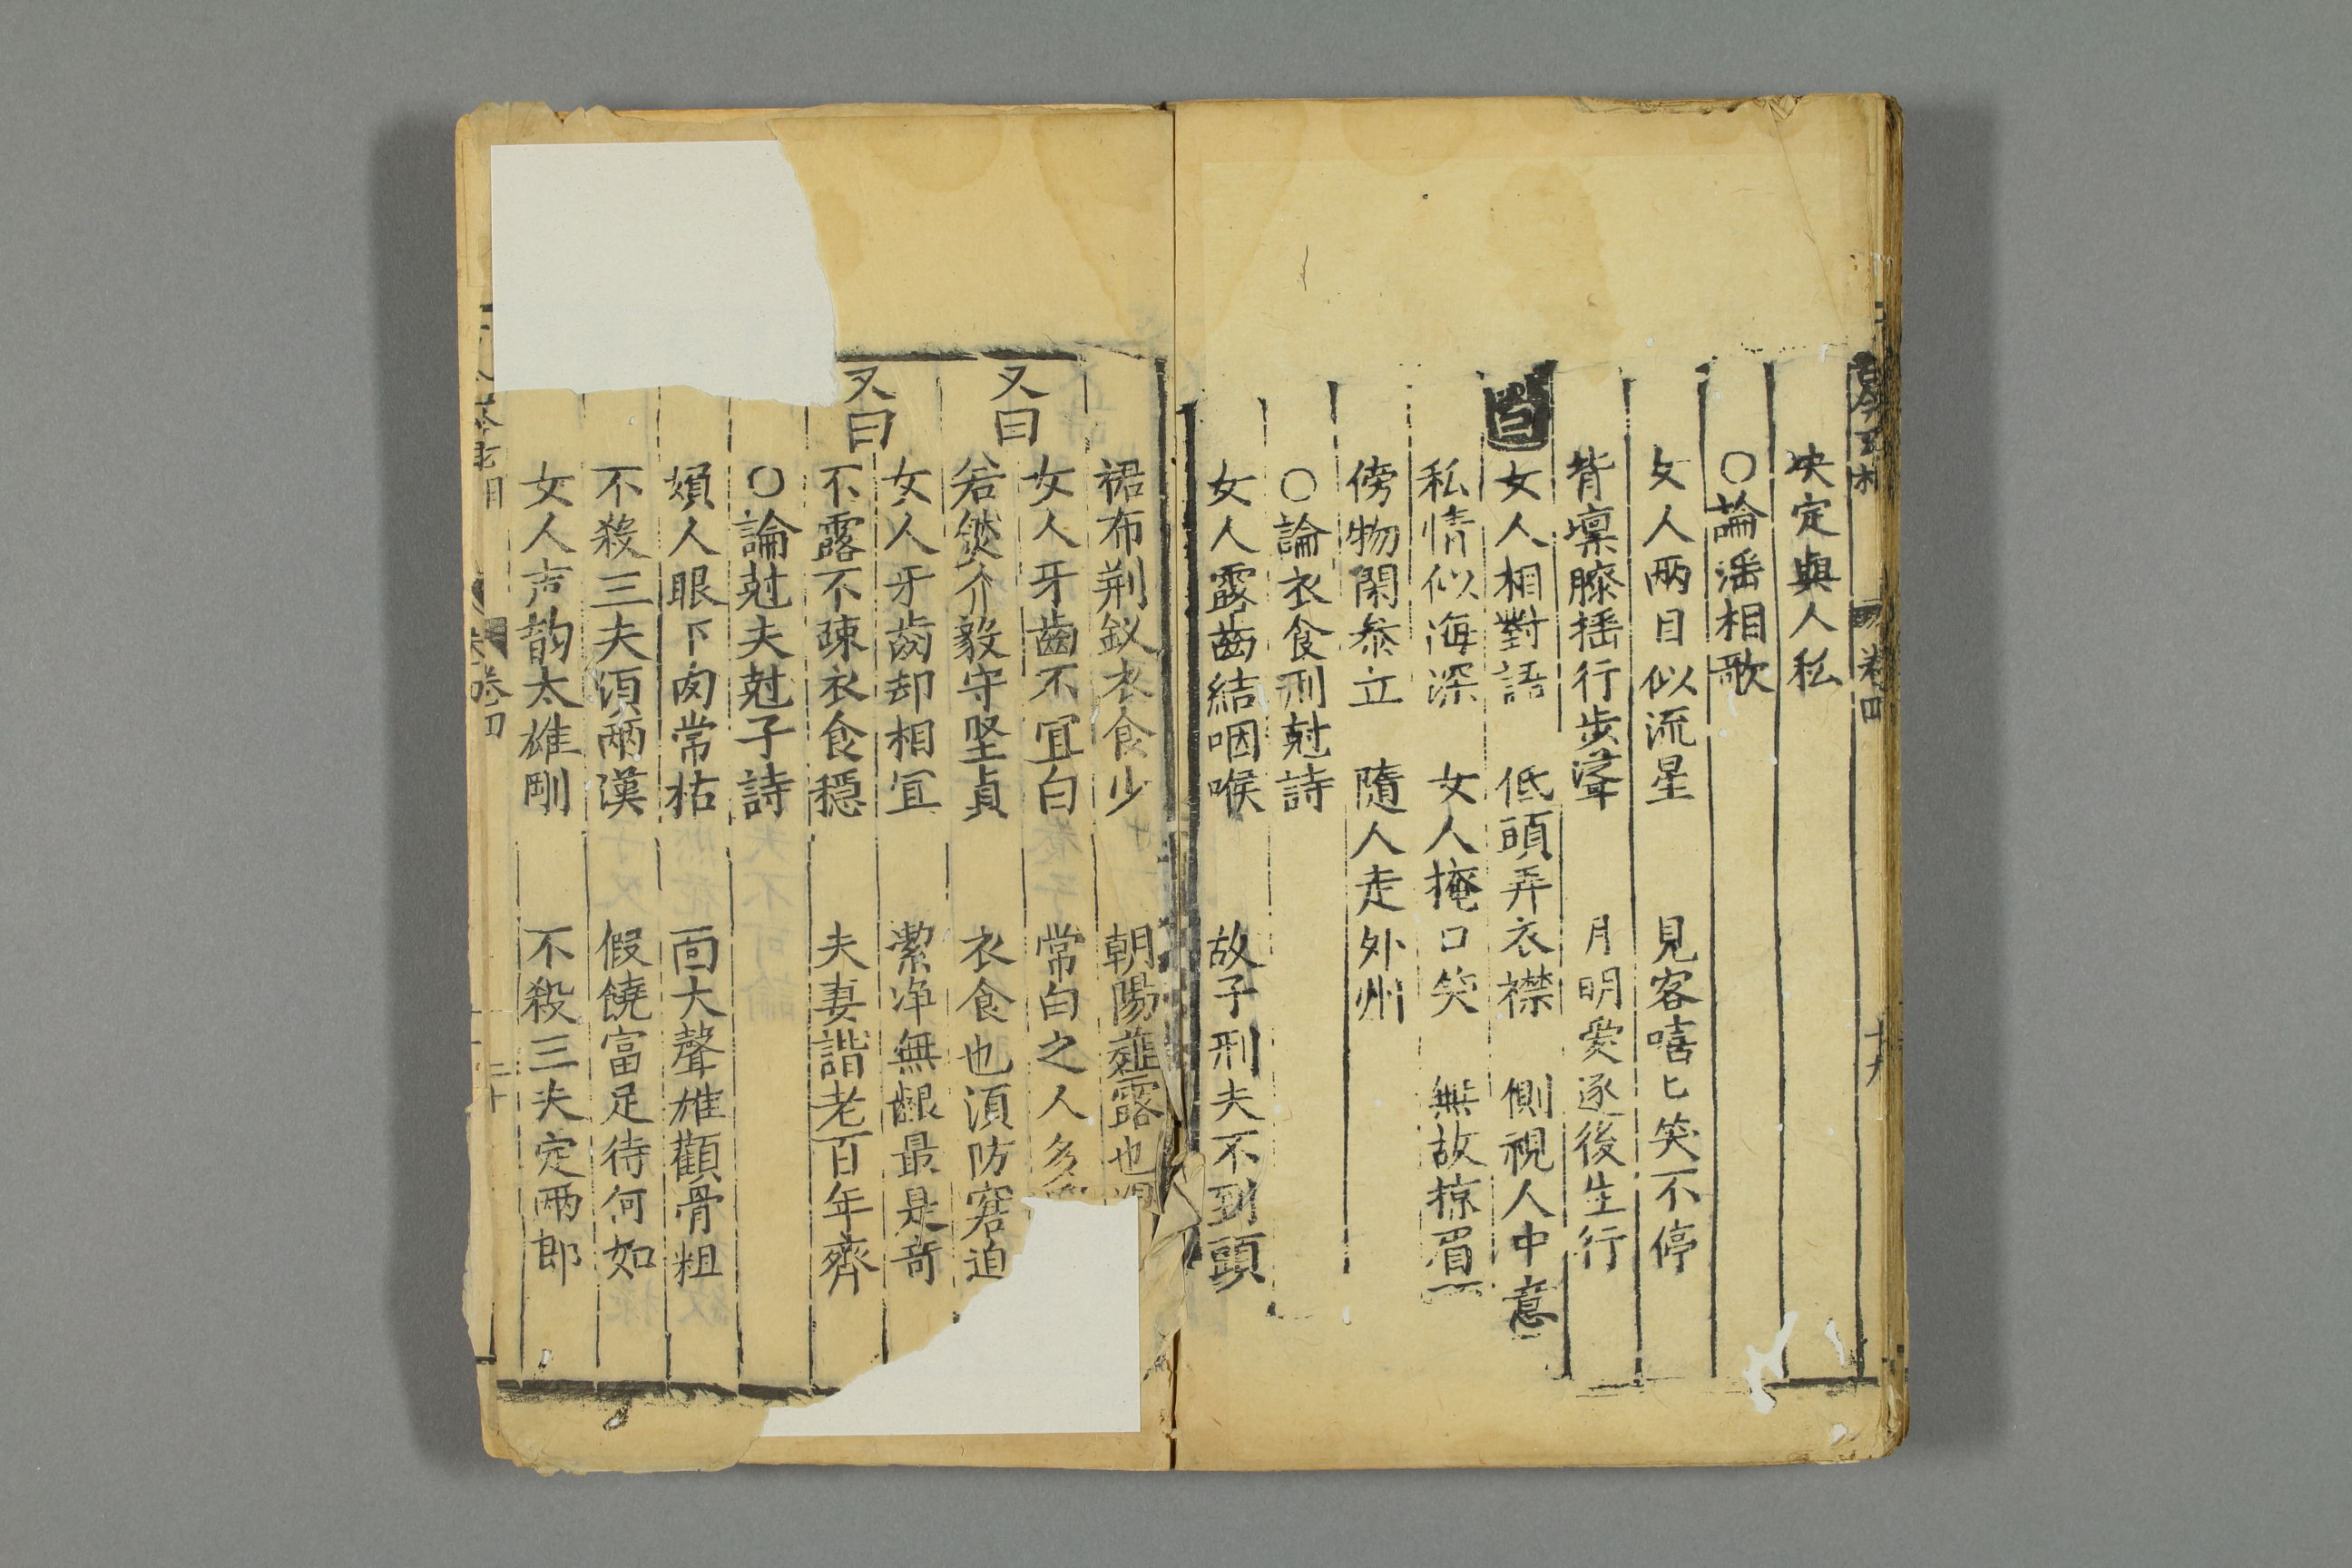 卷四
决定與人私
○論滛相歌
女人兩目似流星 見客嘻匕笑不停
背壈膝揺行步 月明愛逐後生行
曰 女人相對語 低頭弄衣襟 側視人中意
私情似海深 女人掩口笑 無故掠眉
傍物閑叅立 隨人走外州
○論衣食刑尅詩
女人露齒結咽喉 故子刑夫不到頭
裙布荆釵衣食少 朝陽薤露也
又曰 女人牙齒不冝白 常白之人多
若然介毅守坚貞 衣食也湏防窘迫
又曰 女人牙齒却相冝 潔净無齦最是奇
不露不踈衣食穩 夫妻諧老百年齊
○論尅夫尅子詩
婦人眼下肉常枯 面大聲雄顴骨粗
不殺三夫湏兩漢 假饒富足待何如
女人声韵太雄剛 不殺三夫定兩郎
卷四 二十